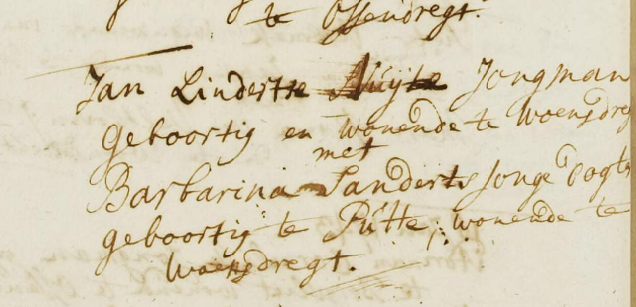 te Ossendregt.
Jan Lindertse Nuijte Jongman
geboortig en wonende te Woensdre
met
Barbarina Sanderts Jonge dogte
geboortig te Putte, wonende te
Woensdregt.